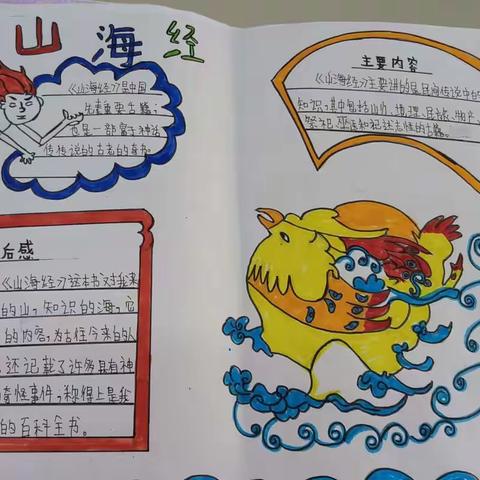 山海经
《山海经》是中国
先秦重要古籍;
也是一部富于神话
传传说的古老的奇书。
主要内容
《山海经》主要讲的是民间传说中的
知识,其中包括山川、道理、民族、物产
祭祀 巫医和记述志怪的古籍。
后感
《山海经》这本书对我来
的山,知识的海,它
的内容,为古往今来的人
还记载了许多具有神
奇怪事件;称得上是我
的百科全书。